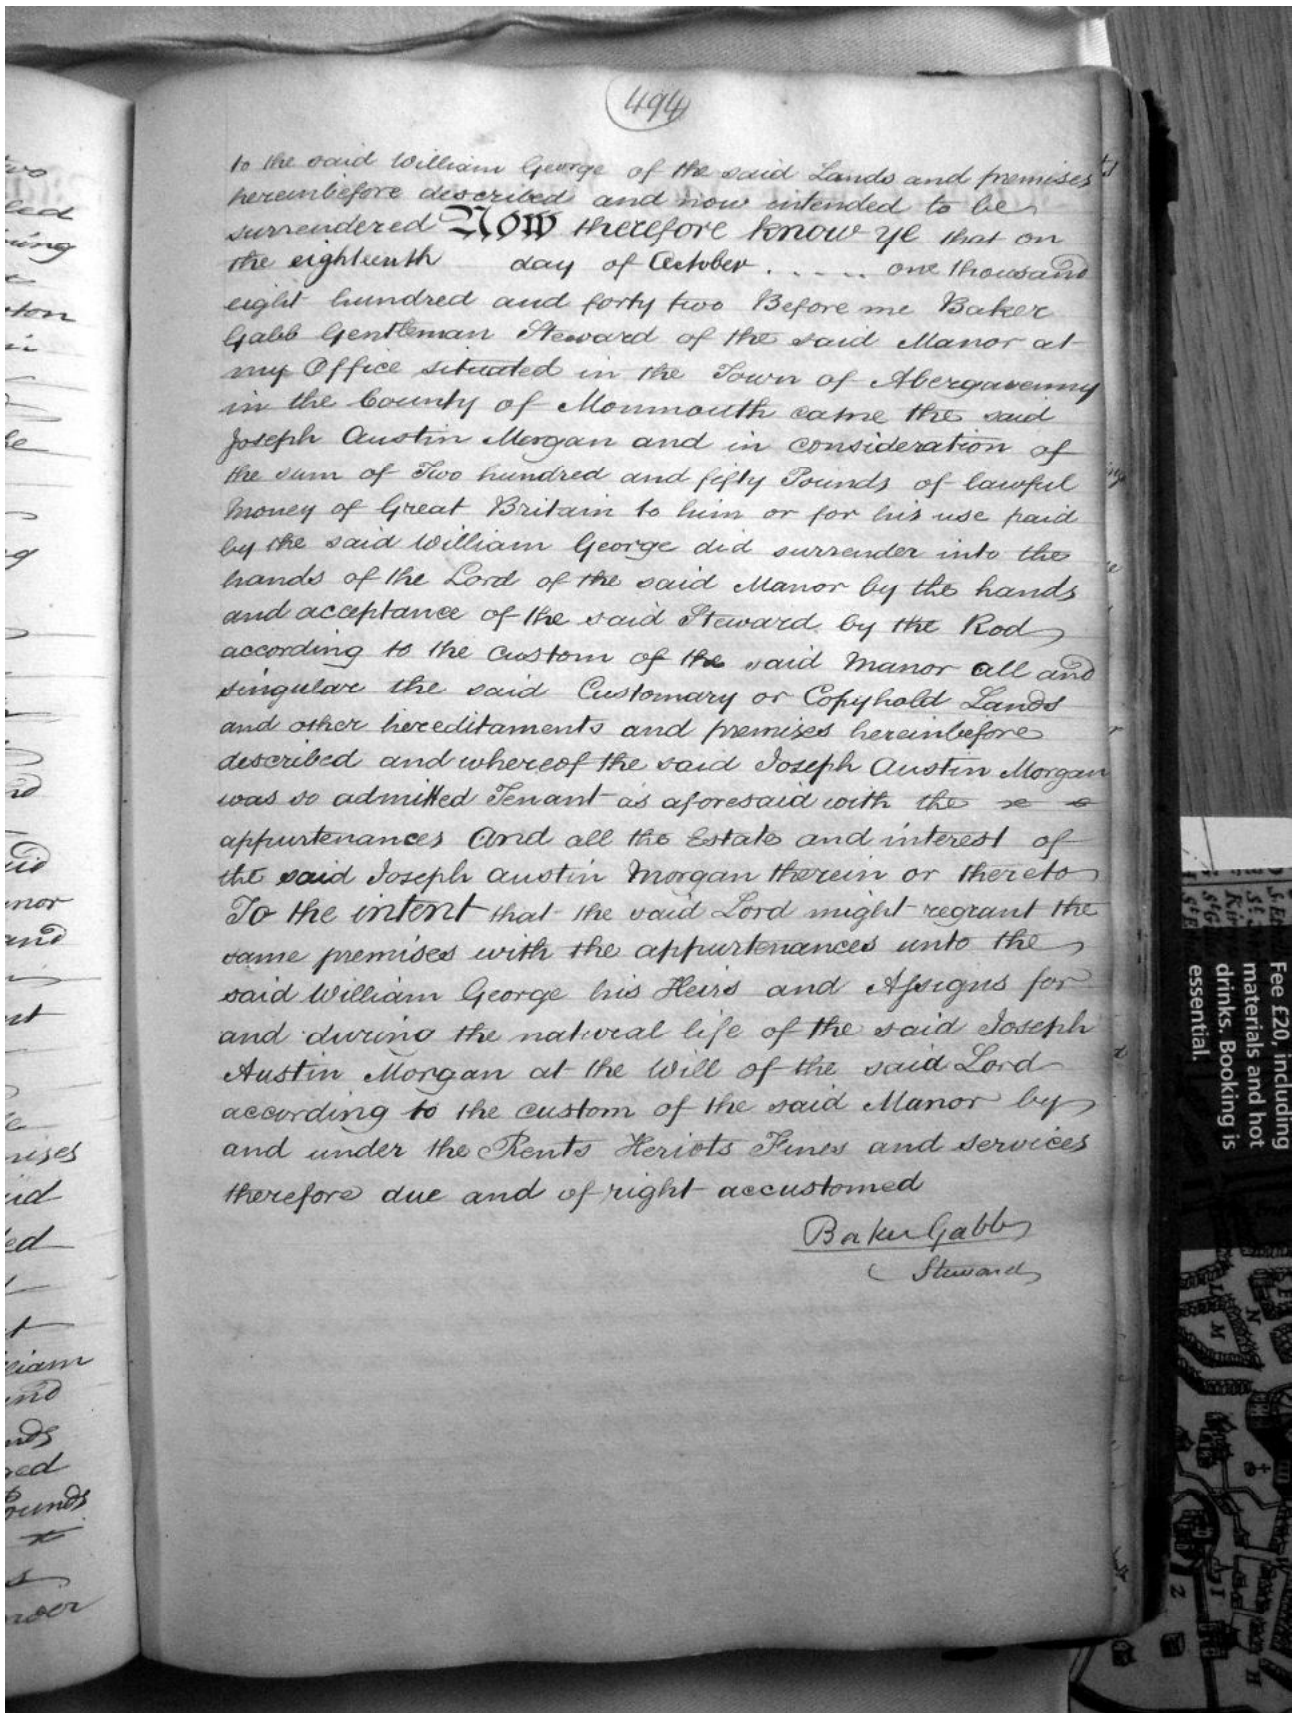 494
to the said William George of the said Lands and premises
hereinbefore described and now intended to be
surrendered Now therefore know ye that on
the eighteenth day of October . . . . . one thousand
eight hundred and forty two Before me Baker
Gabb Gentleman Steward of the said Manor at
my Office situated in the Town of Abergavenny
in the County of Monmouth came the said
Joseph Austin Morgan and in consideration of
the sum of Two hundred and fifty Pounds of lawful
Money of Great Britain to him or for his use paid
by the said William George did surrender into the
hands of the Lord of the said Manor by the hands
and acceptance of the said Steward by the Rod
according to the custom of the said Manor all and
singular the said Customary or Copyhold Lands
and other hereditaments and premises hereinbefore
described and whereof the said Joseph Austin Morgan
was so admitted Tenant as aforesaid with the
appurtenances And all the Estate and interest of
the said Joseph Austin Morgan therein or thereto
To the intent that the said Lord might regrant the
same premises with the appurtenances unto the
said William George his Heirs and Assigns for
and during the natural life of the said Joseph
Austin Morgan at the Will of the said Lord
according to the custom of the said Manor by
and under the Rents Heriots Fines and services
therefore due and of right accustomed
Baker Gabb
Steward
Fee £20, including
materials and hot
drinks. Booking is
essential.